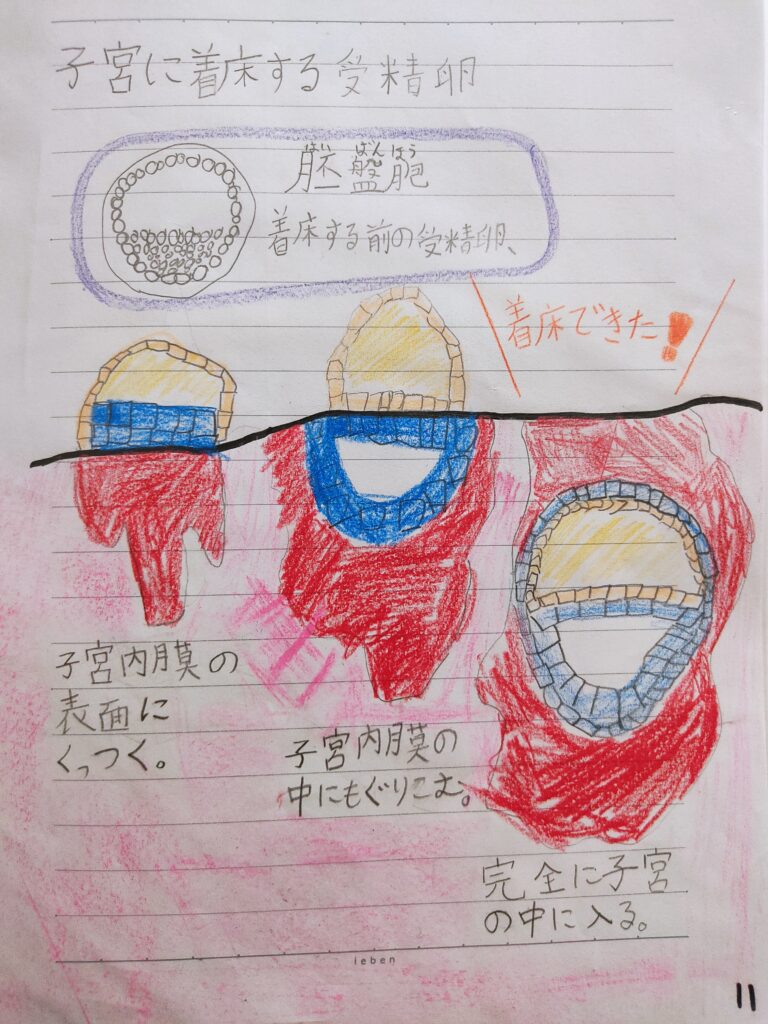 子宮に着床する受精卵
はいばんほう
胚盤胞
着床する前の受精卵、
着床できた!
子宮内膜の
表面に
くっつく。
子宮内膜の
中にもぐりこむ。
完全に子宮
の中に入る。
leben
11